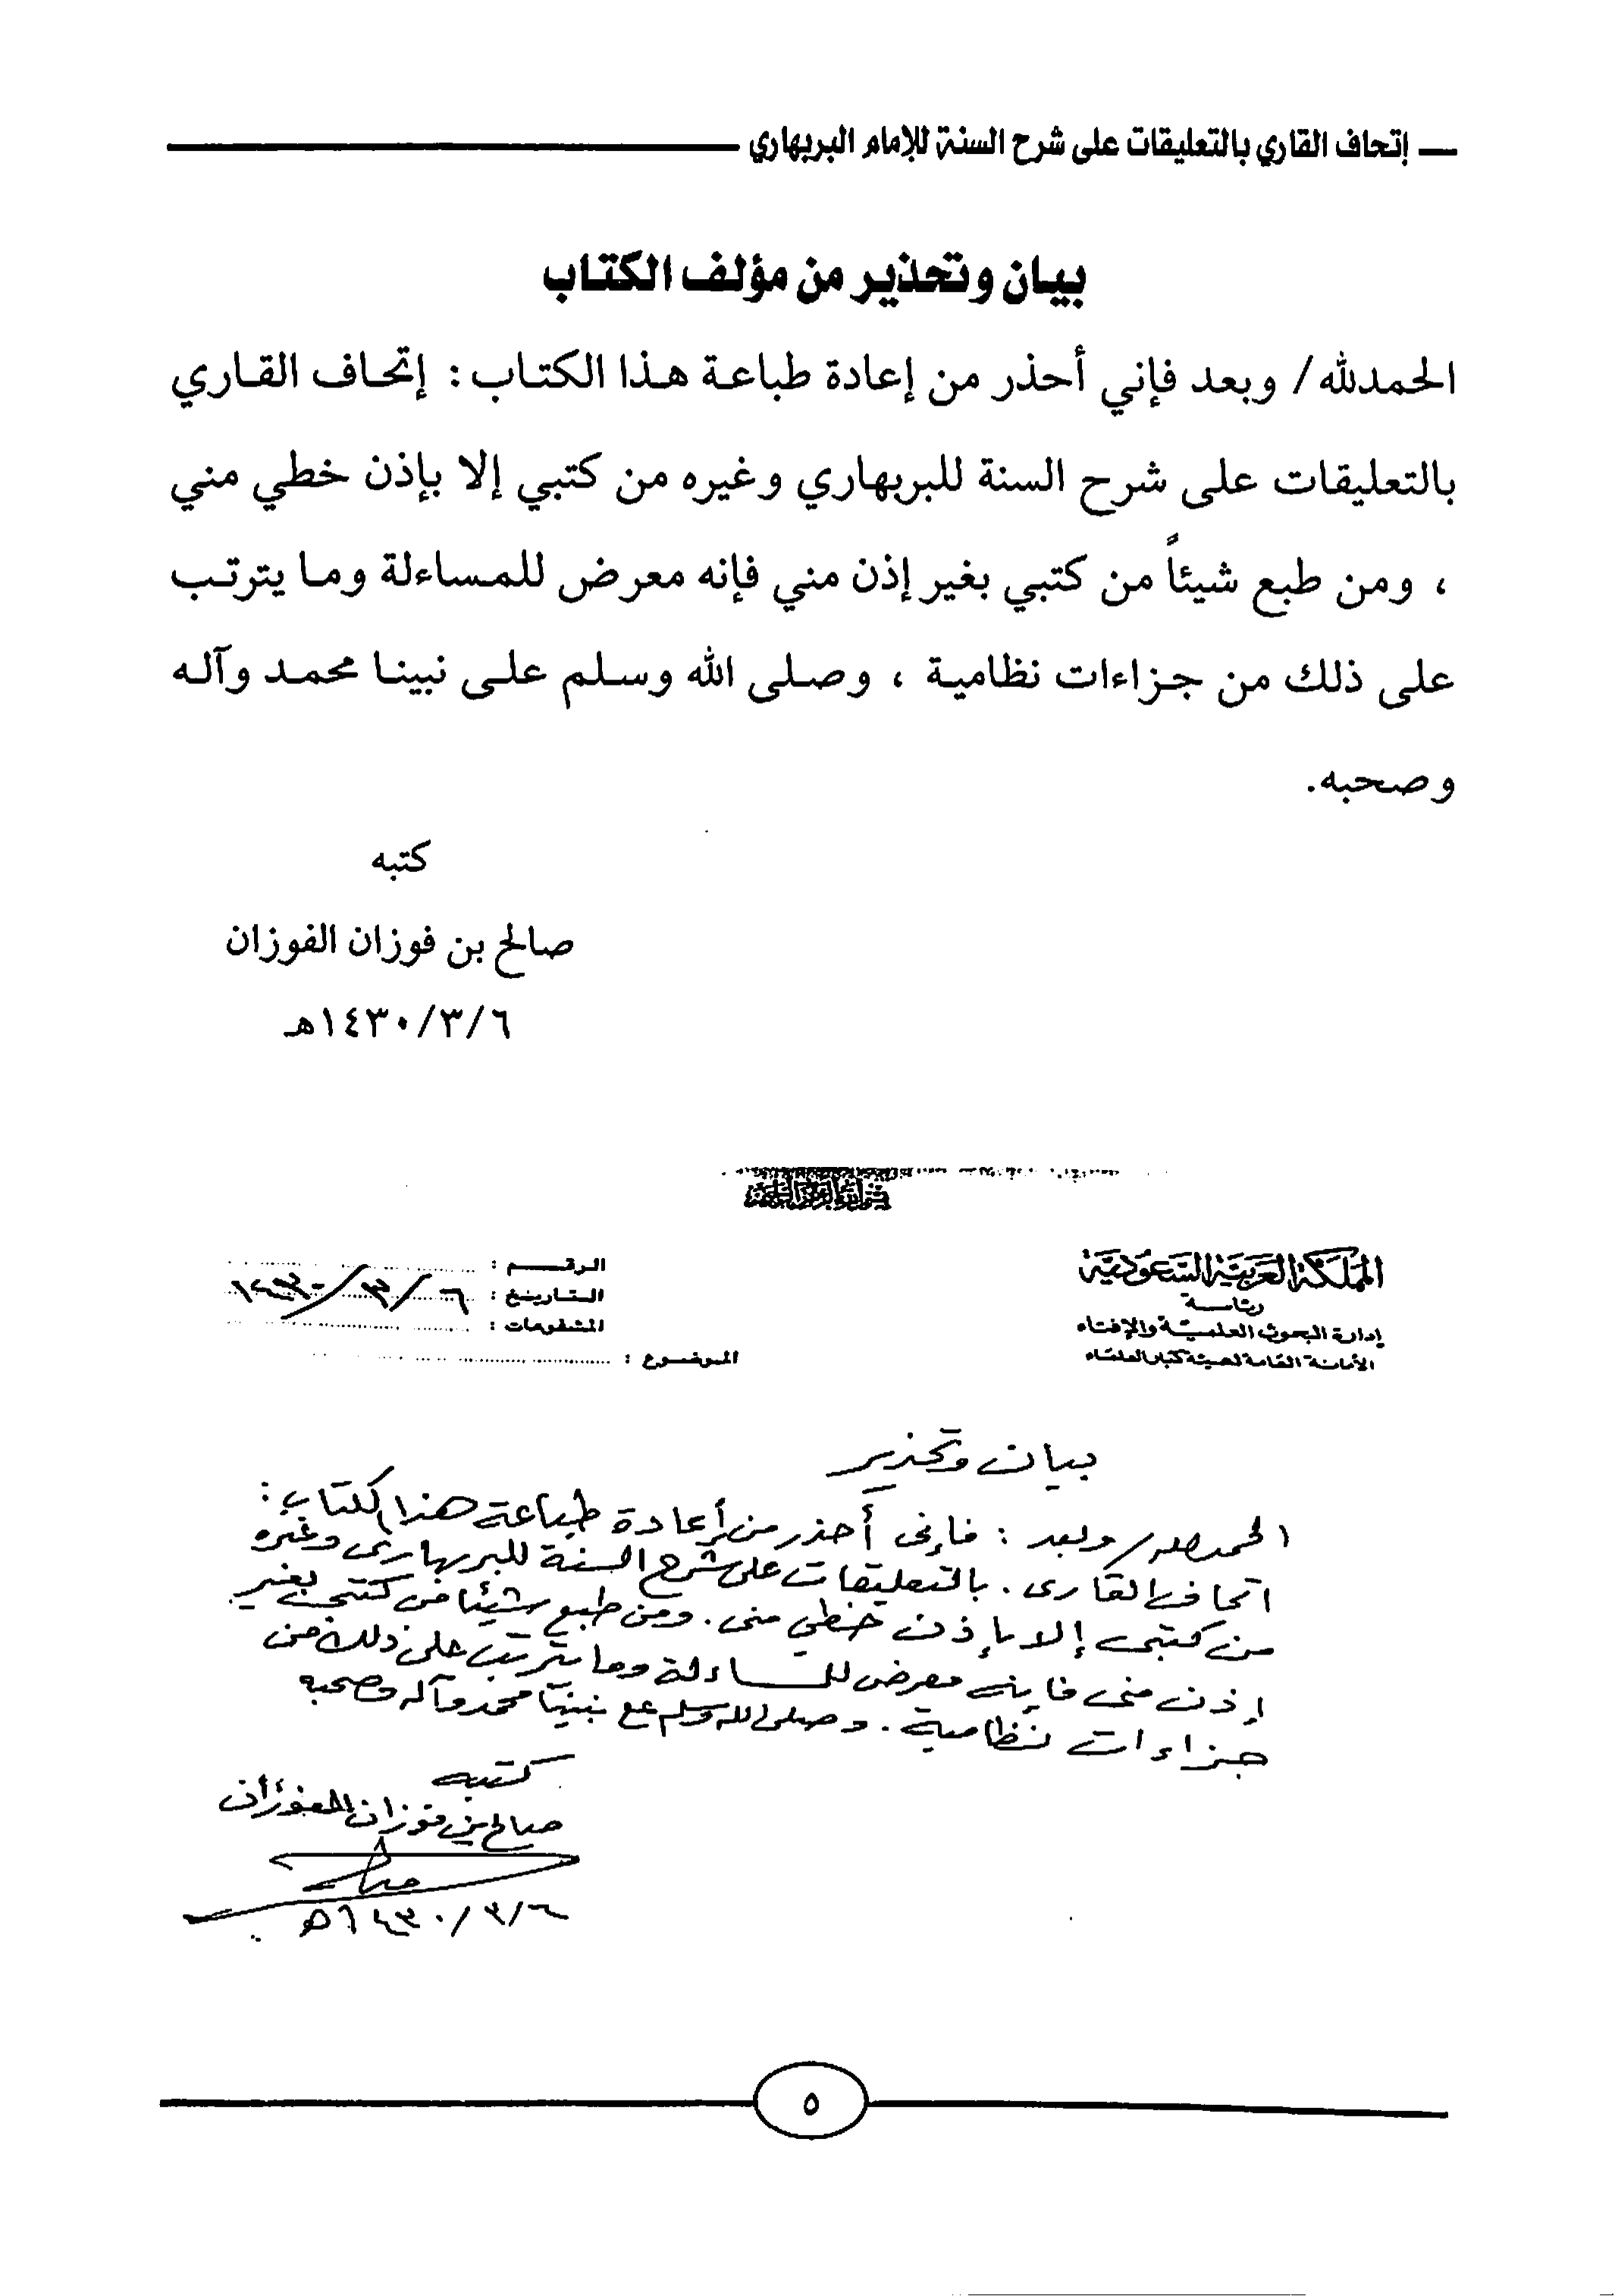 إتحاف القاري بالتعليقات على شرح السنة للإمام البربهاري
بيان وتحذير من مؤلف الكتاب
الحمدلله/ وبعد فإني أحذر من إعادة طباعة هذا الكتاب: إتحاف القاري
بالتعليقات على شرح السنة للبربهاري وغيره من كتبي إلا بإذن خطي مني
، ومن طبع شيئاً من كتبي بغير إذن مني فإنه معرض للمساءلة وما يترتب
على ذلك من جزاءات نظامية ، وصلى الله وسلم على نبينا محمد وآله
وصحبه.
كتبه
صالح بن فوزان الفوزان
١٤٣٠/٣/٦هـ
المملكة العربية السعودية
رئاسة
إدارة البحوث العلمية والإفتاء
الأمانة العامة لهيئة كبار العلماء
الرقم :
التاريخ : ١٤٣٠/٣/٦
المشفوعات :
الموضوع :
بيان وتحذير
الحمد لله/ وبعد : فإني أحذر من إعادة طباعة هذا الكتاب :
اتحاف القارى. بالتعليقات على شرح السنة للبربهارى وغيره
من كتبى إلا بإذن خطي منى. ومن طبع شيئا من كتبي بغير
إذن منى فإنه معرض للمساءلة وما يترتب على ذلك من
جزاءات نظامية. وصلى الله وسلم على نبينا محمد وآله وصحبه
كتبه
صالح بن فوزان الفوزان
١٤٣٠/٣/٦هـ
٥